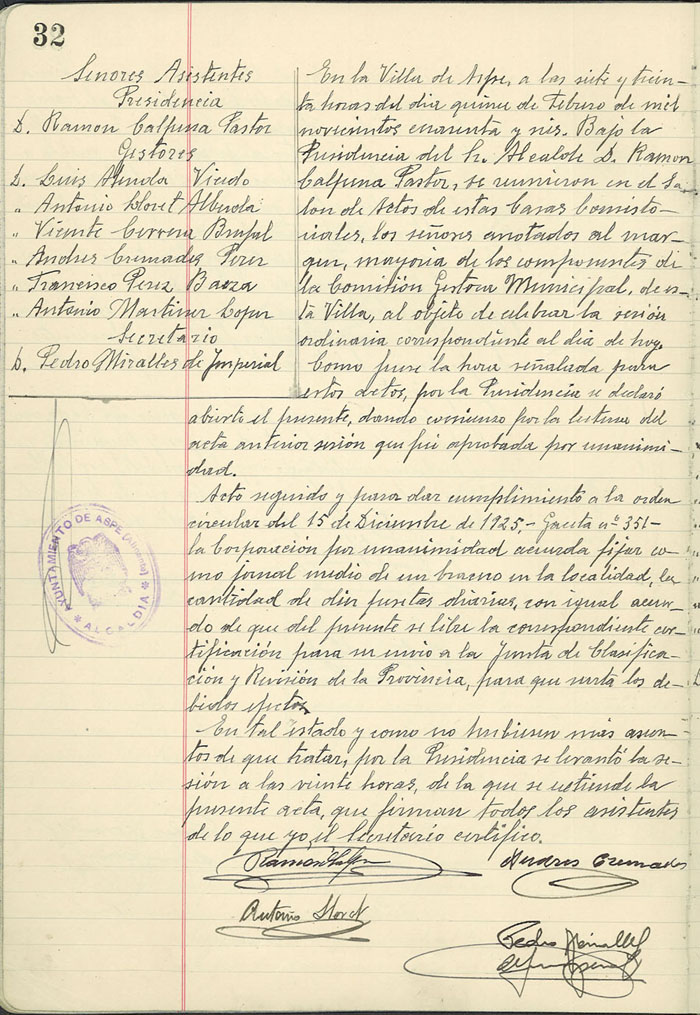 32
Señores Asistentes
Presidencia
D. Ramon Calpena Pastor
Gestores
D. Luis Vicedo
" Antonio Lloret Alberola
" Vicente Cervera
" Andres Cremades Perez
" Francisco Perez Baeza
" Antonio Martinez Lopez
Secretario
D. Pedro Miralles de Imperial
En la Villa de Aspe, a las siete y trein-
ta horas del dia quince de Febrero de mil
novecientos cuarenta y Bajo la
Presidencia del Sr. Alcalde D. Ramon
Calpena Pastor, se reunieron en el Sa-
lon de Actos de estas Casas Consisto-
riales, los señores anotados al mar-
gen, mayoria de los componentes de
la Comisión Gestora Municipal, de es-
ta Villa, al objeto de celebrar la sesión
ordinaria correspondiente al dia de hoy.
Como fuese la hora señalada para
estos actos, por la Presidencia se declaró
abierto el presente, dando comienzo por la lectura del
acta anterior sesión que fué aprobada por unanimi-
dad.
Acto seguido y para dar cumplimiento a la orden
circular del 15 de Diciembre de 1925.- Gaceta nº 351-
la Corporación por unanimidad acuerda fijar co-
mo jornal medio de un bracero en la localidad, la
cantidad de diez pesetas diarias, con igual acuer-
do de que del presente se libre la correspondiente cer-
tificación para su envio a la Junta de Clasifica-
ción y Revisión de la Provincia, para que surta los de-
bidos efectos.
En tal estado y como no hubiesen más asun-
tos de que tratar, por la Presidencia se levantó la se-
sión a las veinte horas, de la que se extiende la
presente acta, que firman todos los asistentes
de lo que yo, el Secretario certifico.
AYUNTAMIENTO DE ASPE (Alicante)
* ALCALDIA *
Ramon Calpena
Andres Cremades
Antonio Lloret
Pedro Miralles
de Imperial